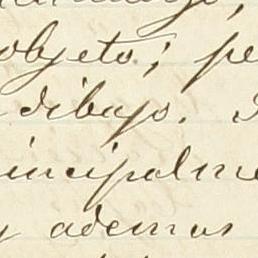 objeto; pe
dibujo.
incipalme
y ademas